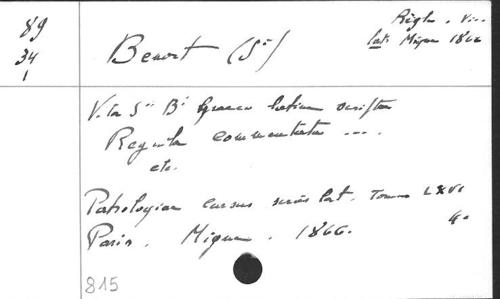 89
34
1
Benoit (St)
Règle. Vi..
lat. Migne 1866
Vita Sti Bi Graece latine scripta
Regula commentata ....
etc.
Patrologiae cursus series lat. Tomus LXVI
Paris. Migne. 1866. 4o
815